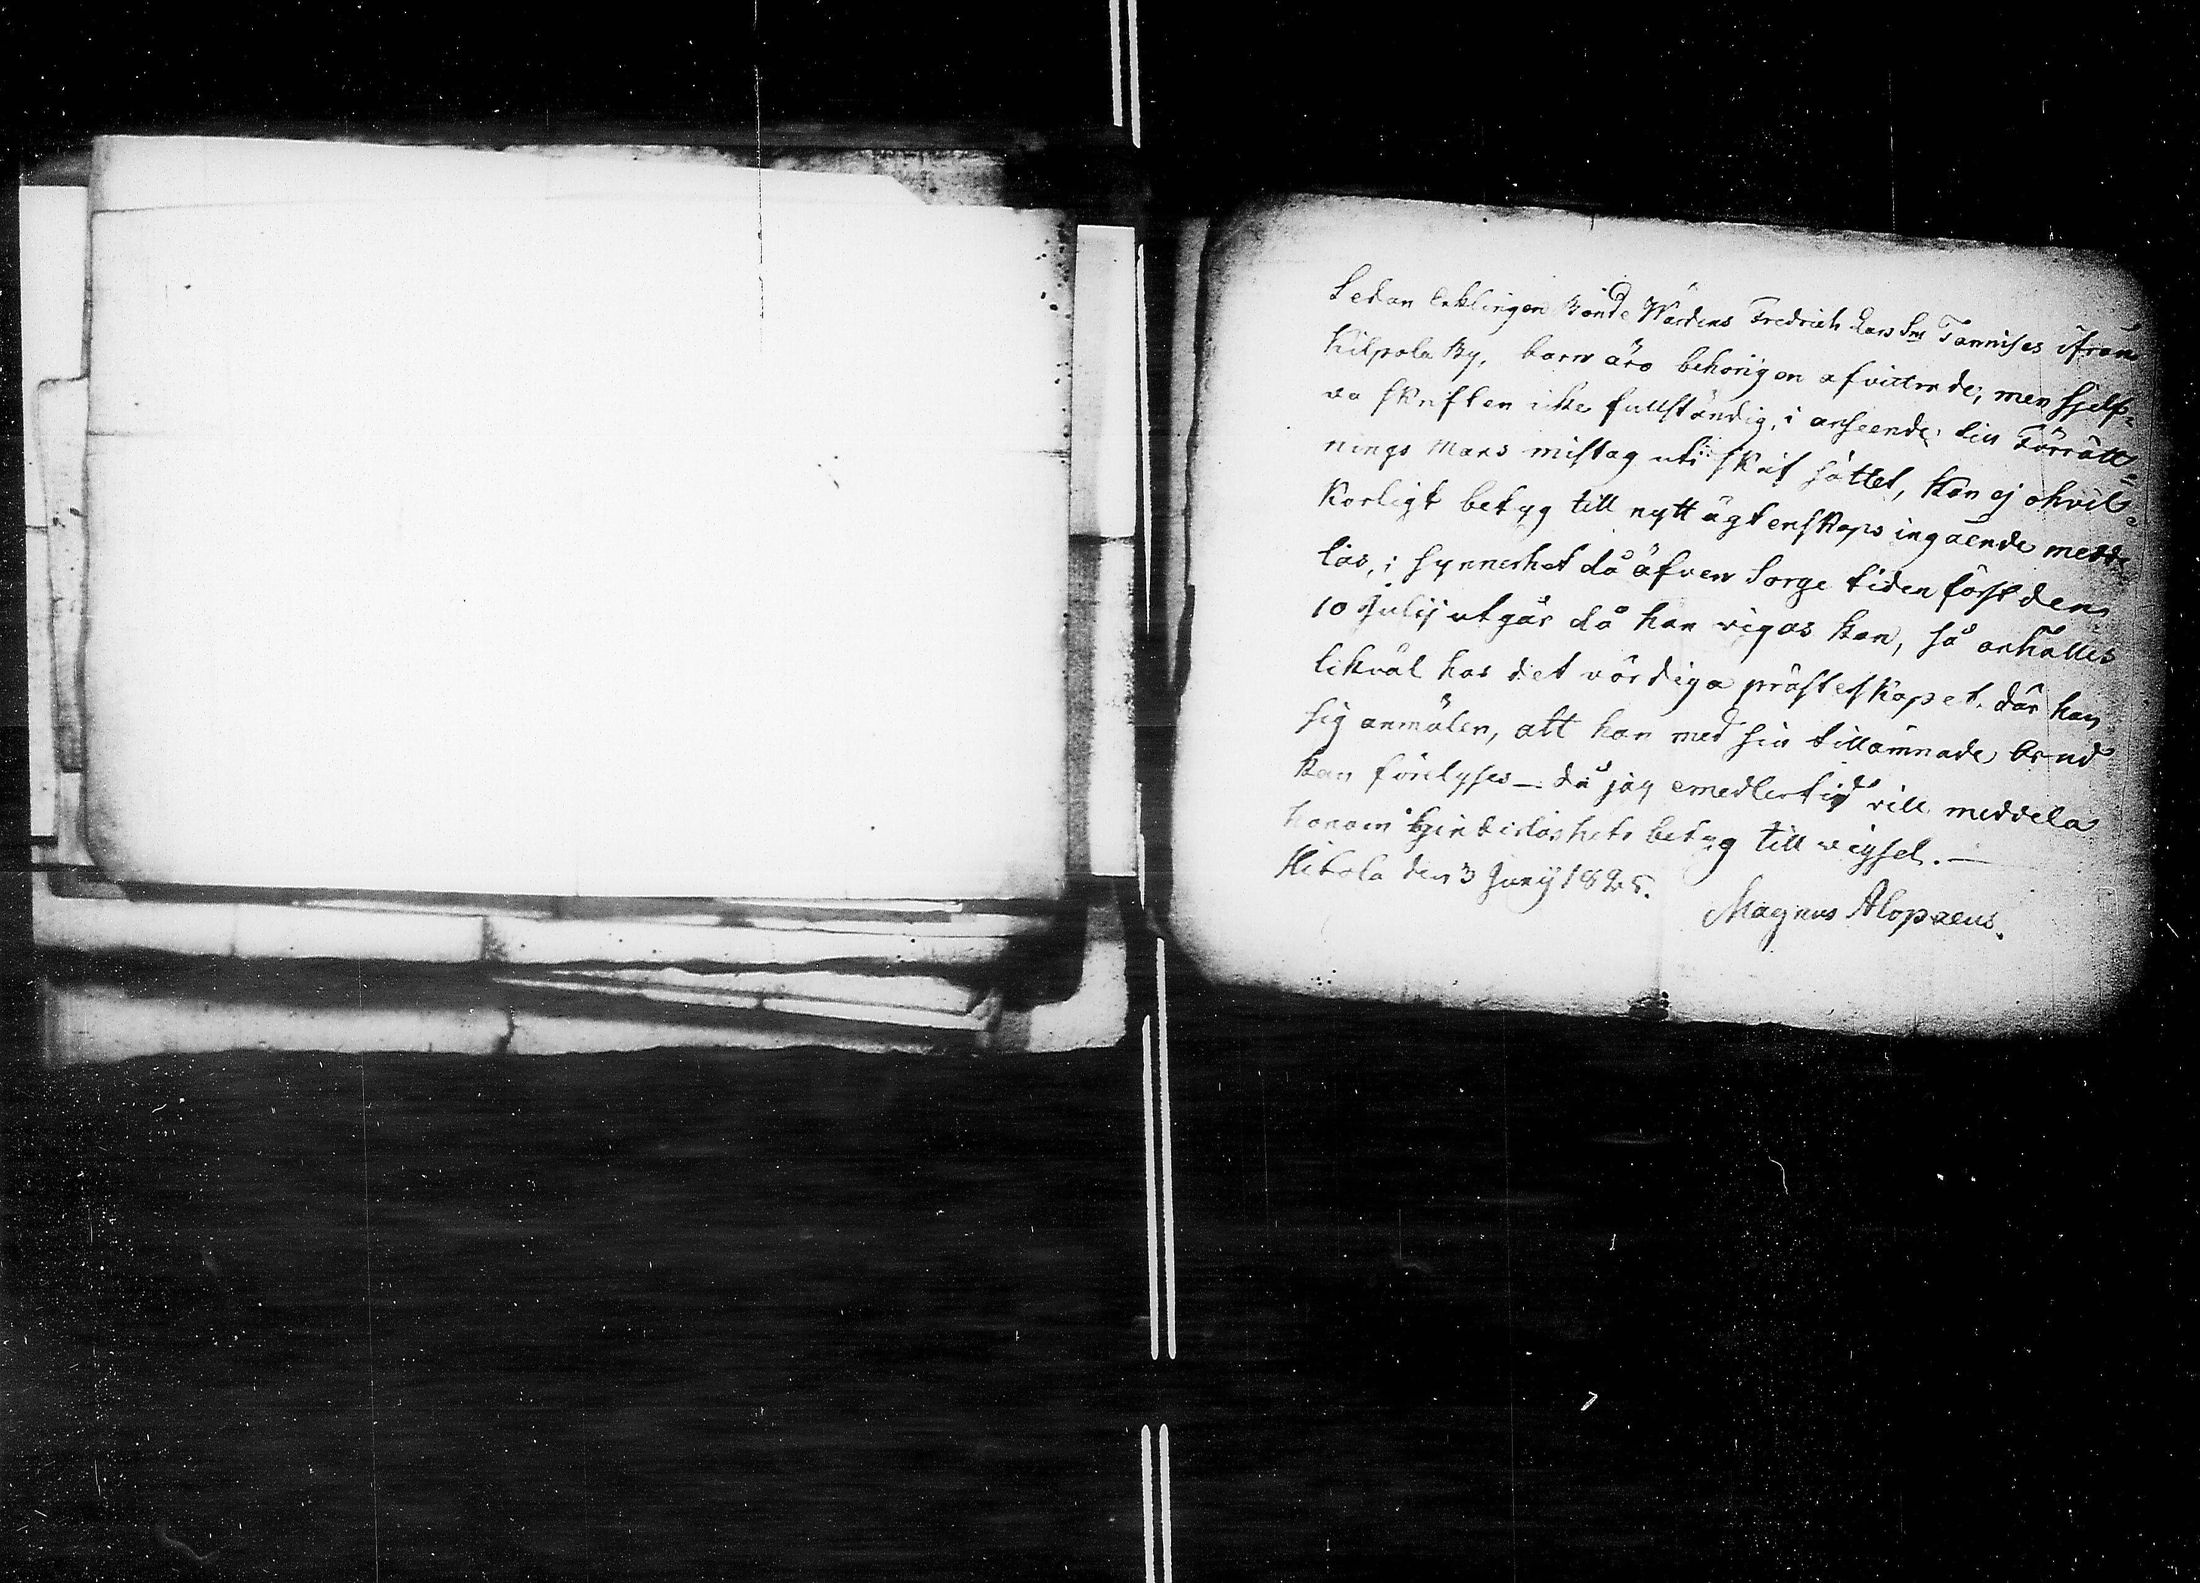 Sedan Enklingen Bonde Wärdens Fredrich Lars Sns Tannises ifrån
Kilpola By, barn äro behörigen afvittrade; men sjelf-
va skriften icke fullständig, i anseende till Förrätt-
nings Mans mistag uti skrif sättet, kan ej ohvil-
korligt betyg till nytt ägtenskaps ingående medde-
las, i synnerhet då äfven Sorge tiden först den
10 Julij utgår då han vigas kan, så anhålles
likväl hos det vördiga prästeskapet där han
sig anmäler, att han med sin tillämnade brud
kan förelyses — då jag emedlertid vill meddela
honom hinderlöshets betyg till vigsel. —
Hitola den 3 Junij 1825.
Magnus Alopaeus.